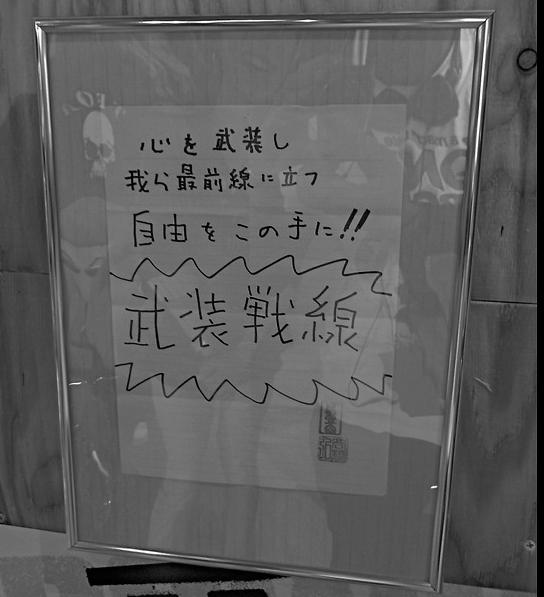 心を武装し
我ら最前線に立つ
自由をこの手に!!
武装戦線